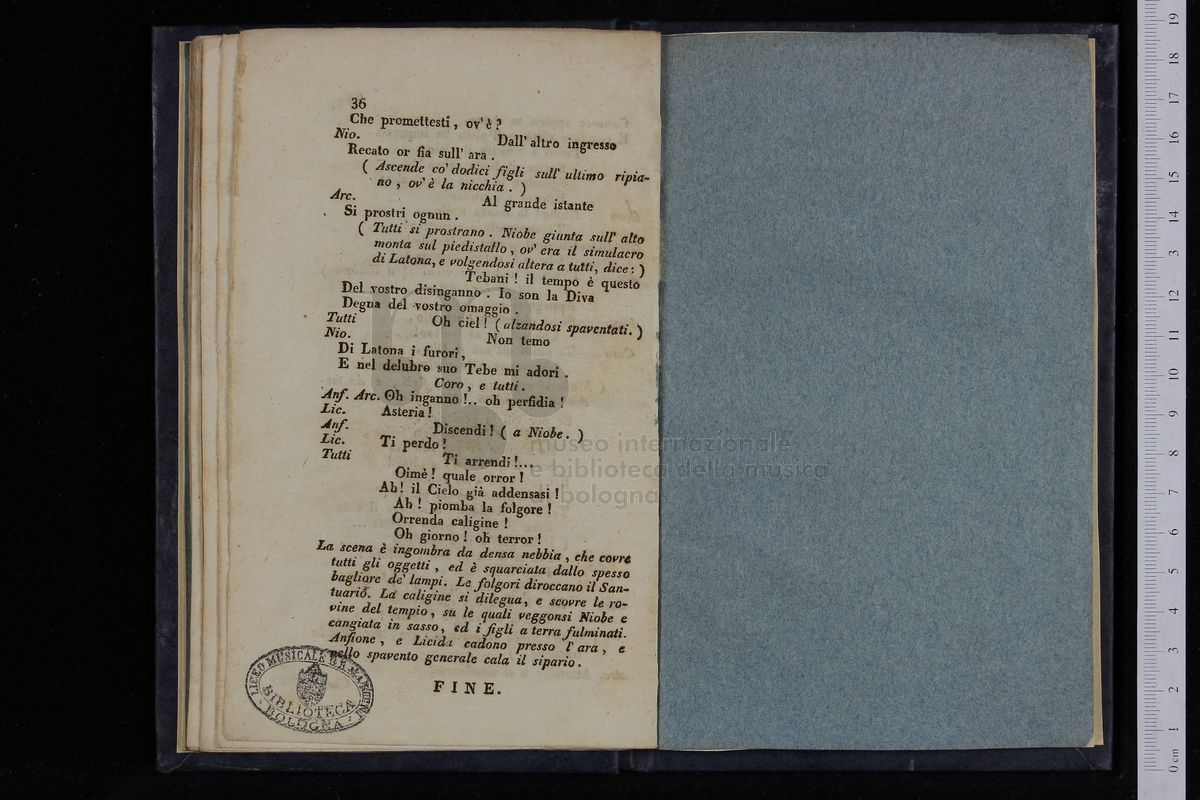 36
Che promettesti, ov'è?
Nio. Dall'altro ingresso
Recato or fia sull'ara.
( Ascende co' dodici figli sull' ultimo ripia-
no, ov' è la nicchia. )
Arc. Al grande istante
Si prostri ognun.
( Tutti si prostrano. Niobe giunta sull' alto
monta sul piedistallo, ov' era il simulacro
di Latona, e volgendosi altera a tutti, dice: )
Tebani! il tempo è questo
Del vostro disinganno. Io son la Diva
Degna del vostro omaggio.
Tutti Oh ciel! ( alzandosi spaventati. )
Nio. Non temo
Di Latona i furori,
E nel delubro suo Tebe mi adori.
Coro, e tutti.
Anf. Arc. Oh inganno!.. oh perfidia!
Lic. Asteria!
Anf. Discendi! ( a Niobe. )
Lic. Ti perdo!
Tutti Ti arrendi!...
Oimè! quale orror!
Ah! il Cielo già addensasi!
Ah! piomba la folgore!
Orrenda caligine!
Oh giorno! oh terror!
La scena è ingombra da densa nebbia, che covre
tutti gli oggetti, ed è squarciata dallo spesso
bagliore de' lampi. Le folgori diroccano il San-
tuario. La caligine si dilegua, e scovre le ro-
vine del tempio, su le quali veggonsi Niobe e
cangiata in sasso, ed i figli a terra fulminati.
Anfione, e Licida cadono presso l'ara, e
nello spavento generale cala il sipario.
FINE.
LICEO MUSICALE G.B. MARTINI
BIBLIOTECA
BOLOGNA
museo internazionale
e biblioteca della musica
di bologna
0 cm 1 2 3 4 5 6 7 8 9 10 11 12 13 14 15 16 17 18 19